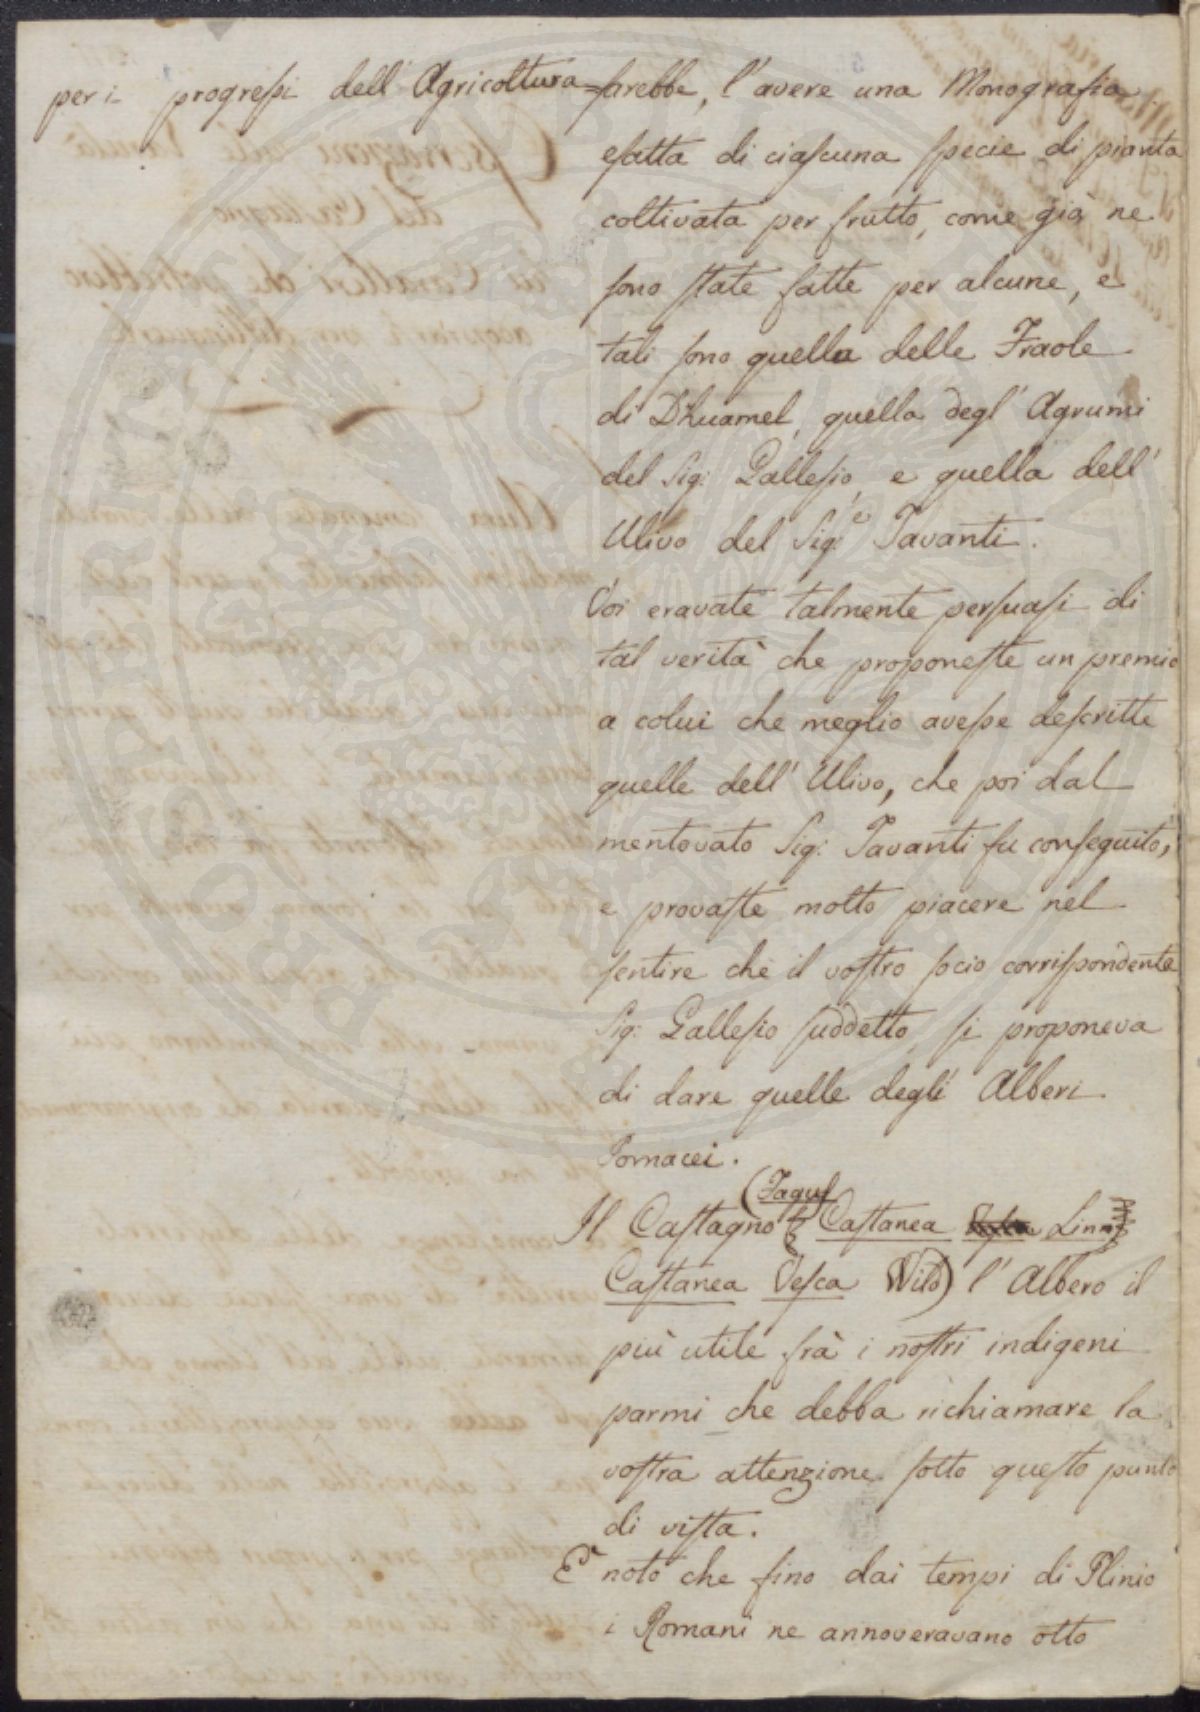 per i progressi dell'Agricoltura = sarebbe, l'avere una Monografia
esatta di ciascuna specie di pianta
coltivata per frutto, come già ne
sono state fatte per alcune, e
tali sono quella delle Fraole
di Dhuamel, quella degl'Agrumi
del Sig: Gallesio, e quella dell'
Ulivo del Sig:e Tavanti.
Voi eravate talmente persuasi di
tal verità che proponeste un premio
a colui che meglio avesse descritte
quelle dell'Ulivo, che poi dal
mentovato Sig: Tavanti fu conseguito,
e provaste molto piacere nel
sentire che il vostro socio corrispondente
Sig: Gallesio suddetto si proponeva
di dare quelle degli Alberi
Pomacei.
Il Castagno (Fagus Castanea Linn
Castanea Vesca Wild) l'Albero il
più utile frà i nostri indigeni
parmi che debba richiamare la
vostra attenzione sotto questo punto
di vista.
E' noto che fino dai tempi di Plinio
i Romani ne annoveravano otto